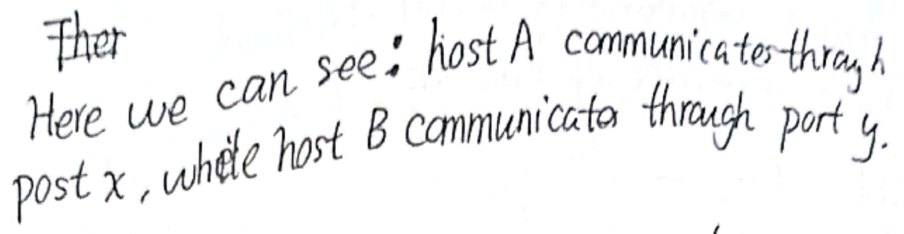 Ther
Here we can see: host A communicates through
post x, while host B communicates through port y.